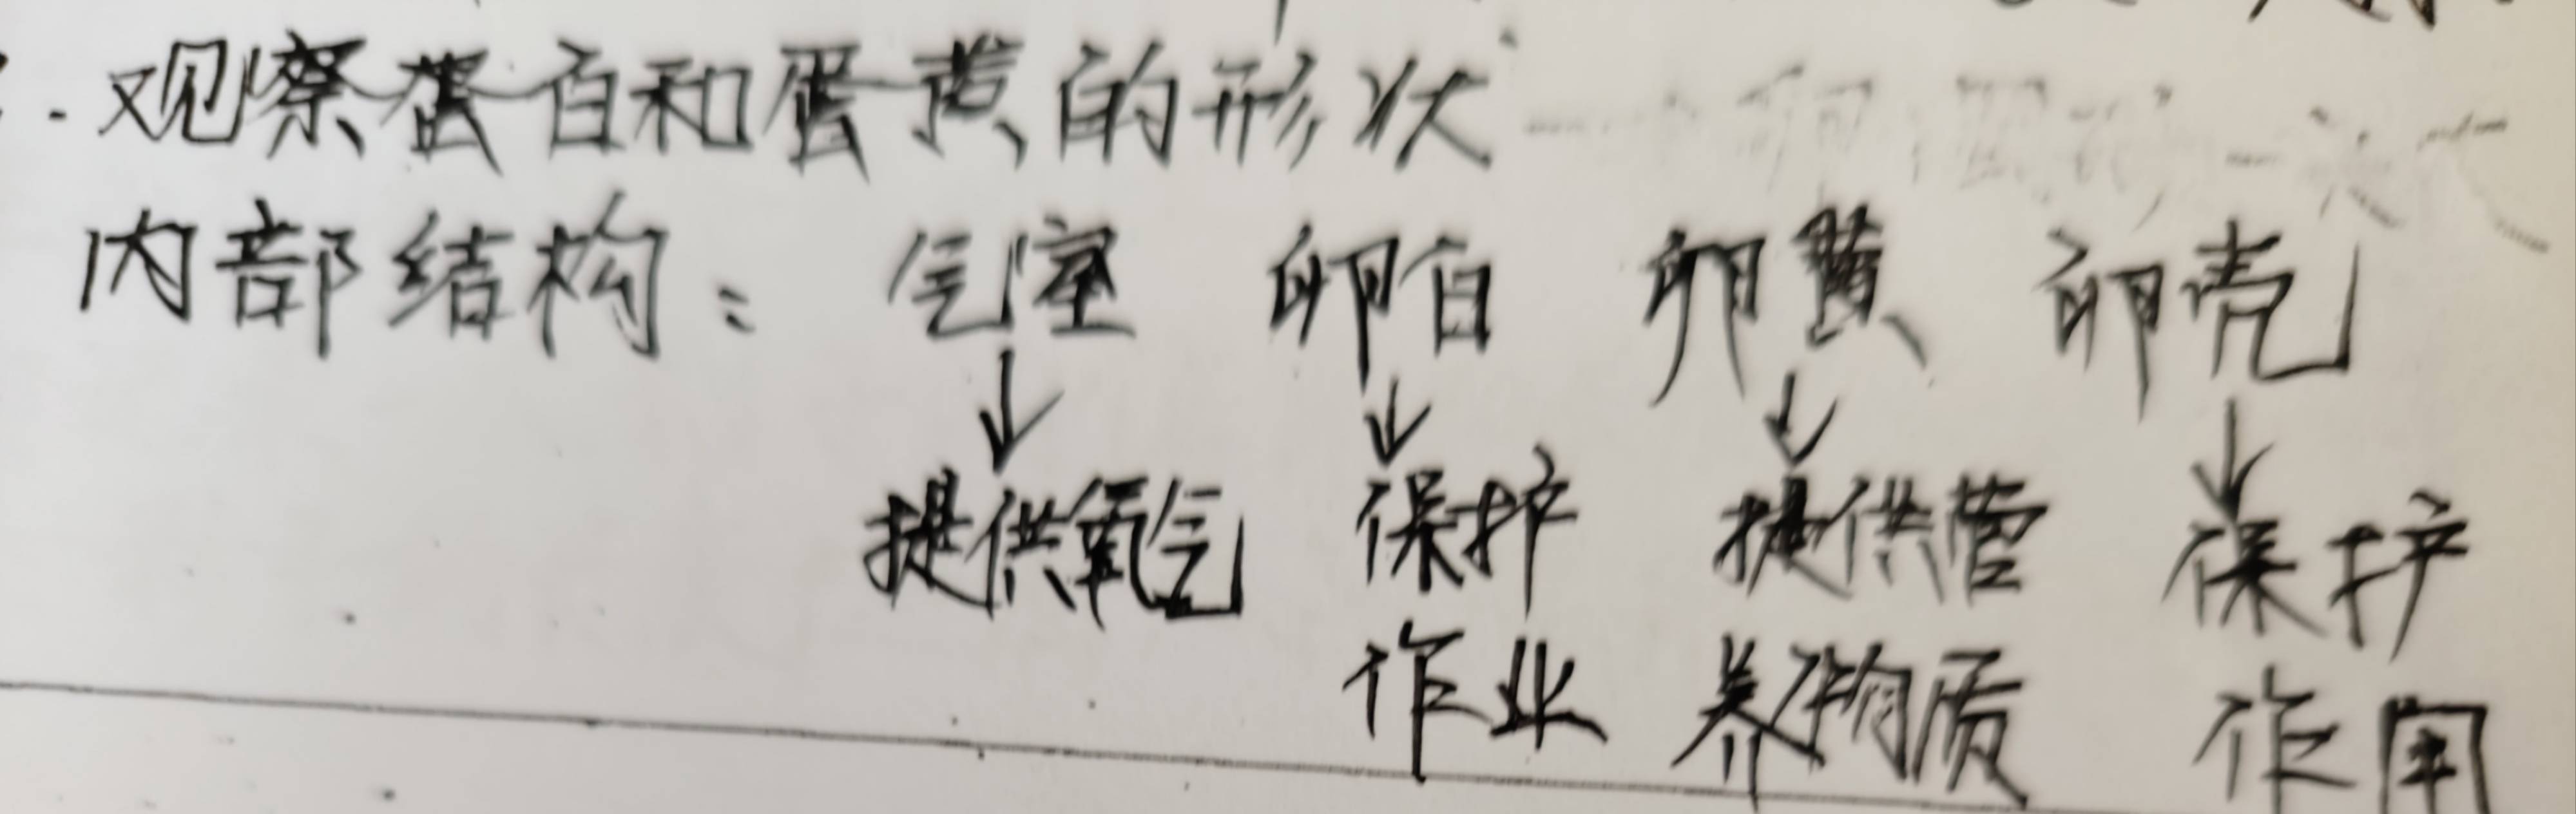 观察蛋白和蛋黄的形状
内部结构： 气室 卵白 卵黄 卵壳
↓ ↓ ↓ ↓
提供氧气 保护 提供营 保护
作业 养物质 作用